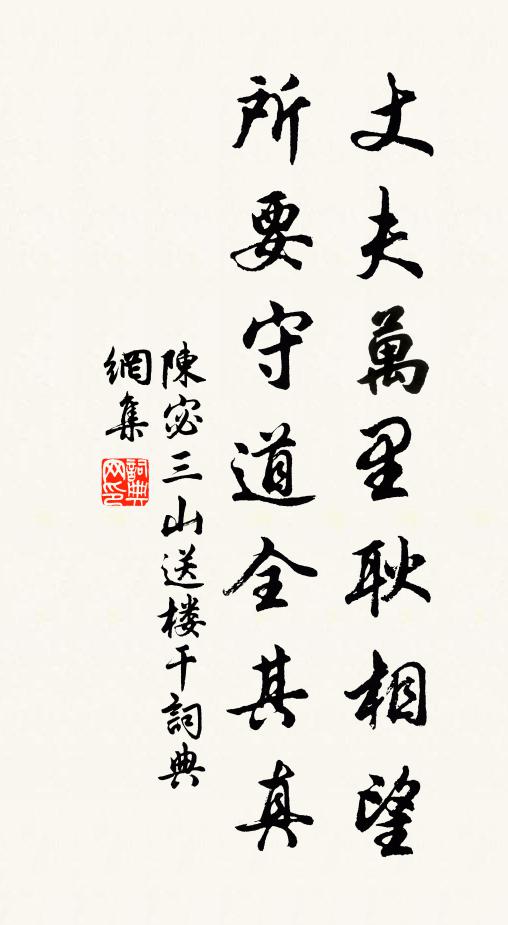 丈夫萬里耿相望
所要守道全其真
陳宓三山送楼干詞典
網集
詞典网印